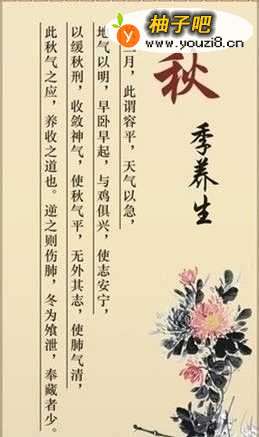 柚子吧
www.youzi8.cn
秋
季养生
月，此谓容平，天气以急，
地气以明，早卧早起，与鸡俱兴，使志安宁，
以缓秋刑，收敛神气，使秋气平，无外其志，使肺气清，
此秋气之应，养收之道也。逆之则伤肺，冬为飧泄，奉藏者少。